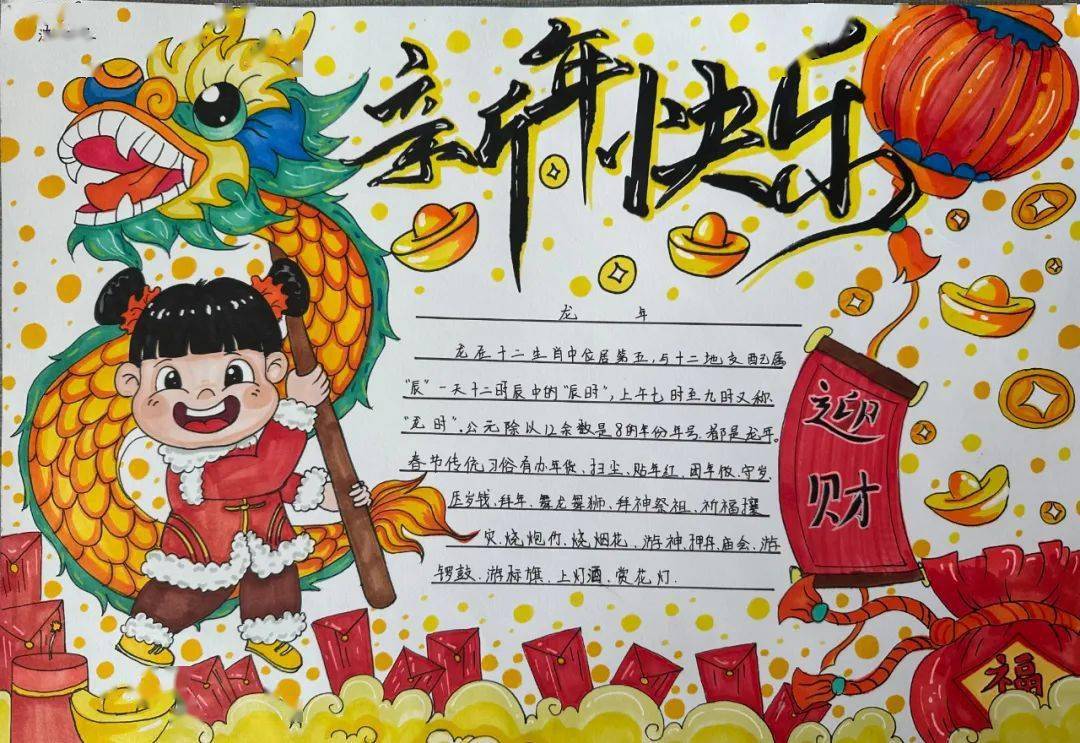 新年快乐
龙 年
龙在十二生肖中位居第五,与十二地支配属
“辰”一天十二时辰中的“辰时”,上午七时至九时又称
“龙时”.公元除以12余数是8的年份年号.都是龙年。
春节传统习俗有办年货、扫尘、贴年红、团年饭、守岁、
压岁钱、拜年、舞龙舞狮、拜神祭祖、祈福攘
灾、烧炮竹、烧烟花、游神、押舟、庙会、游
锣鼓、游标旗、上灯酒、赏花灯.
迎财
福